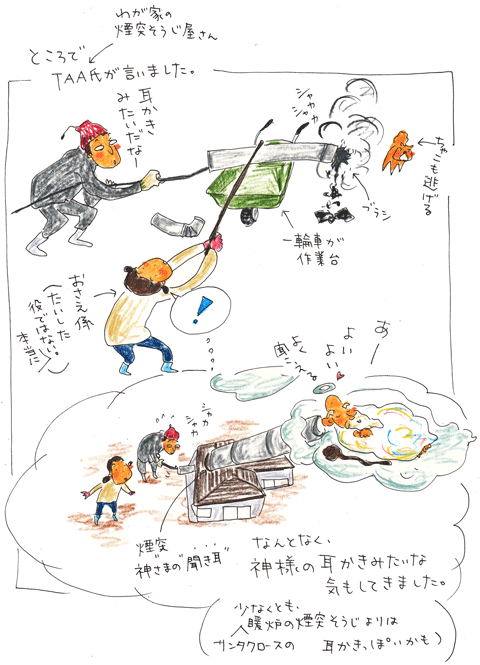 わが家の
煙突そうじ屋さん
ところで
TAA氏が言いました。
耳かき
みたいだなー
シャカ
シャカ
ちゃこも逃げる
ブラシ
一輪車が
作業台
おさえ係
(たいした
役ではない。
本当に)
!
あ
よいよい
よく
聞こえる
シャカ
シャカ
煙突
神さまの“聞き耳”
なんとなく、
神様の耳かきみたいな
気もしてきました。
(少なくとも、
暖炉の煙突そうじよりは
サンタクロースの 耳かきっぽいかも)